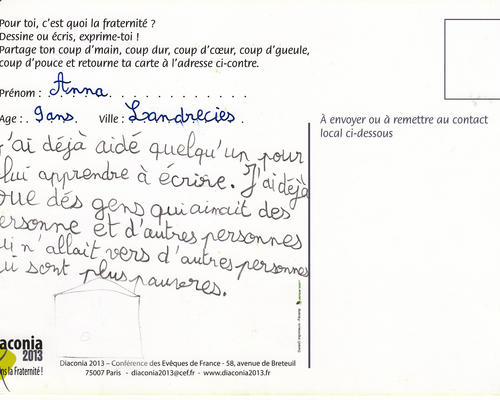 Pour toi, c'est quoi la fraternité ?
Dessine ou écris, exprime-toi !
Partage ton coup d'main, coup dur, coup d'cœur, coup d'gueule,
coup d'pouce et retourne ta carte à l'adresse ci-contre.
Prénom : Anna
Age : 9 ans. Ville : Landrecies.
À envoyer ou à remettre au contact
local ci-dessous
j'ai déjà aidé quelqu'un pour
lui apprendre à écrire. J'ai déjà
vue dés gens qui aimait des
ersonne et d'autres personnes
ui n'allait vers d'autres personnes
ui sont plus pauvres.
iaconia
2013
ns la Fraternité !
Diaconia 2013 – Conférence des Evêques de France - 58, avenue de Breteuil
75007 Paris - diaconia2013@cef.fr - www.diaconia2013.fr